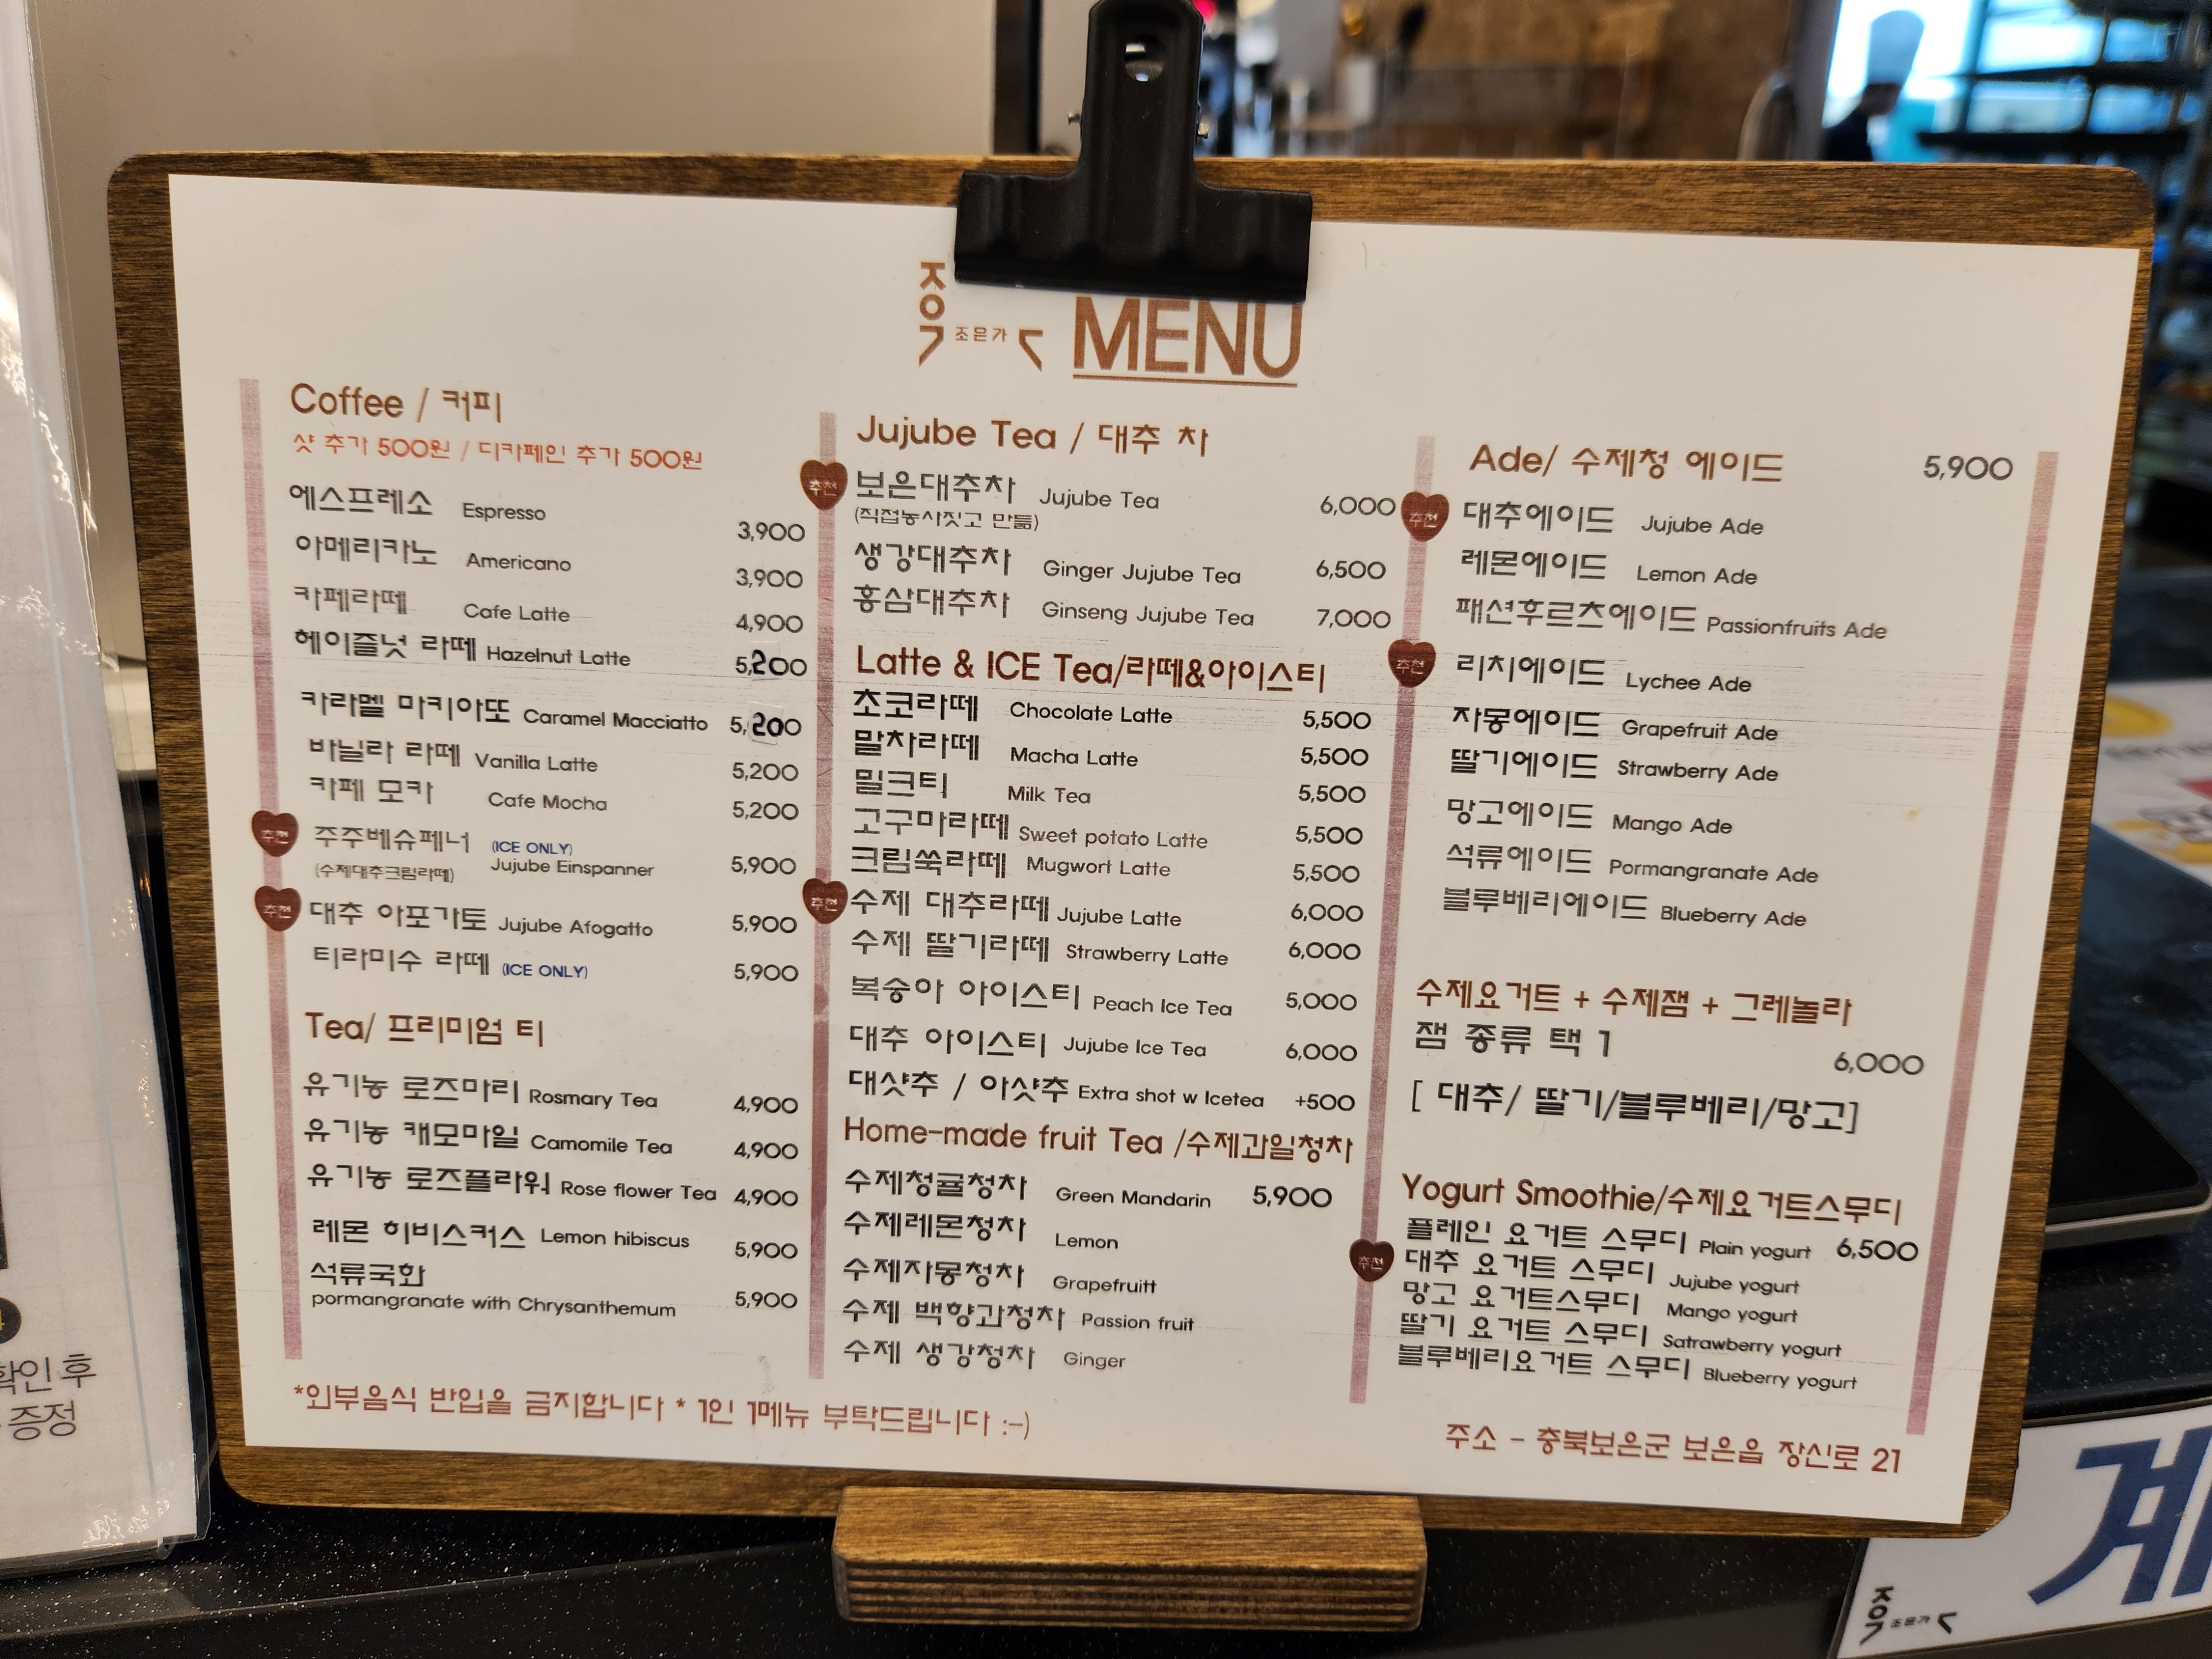 조은가
MENU
Coffee / 커피
샷 추가 500원 / 디카페인 추가 500원
에스프레소 Espresso 3,900
아메리카노 Americano 3,900
카페라떼 Cafe Latte 4,900
헤이즐넛 라떼 Hazelnut Latte 5,200
카라멜 마키아또 Caramel Macciatto 5,200
바닐라 라떼 Vanilla Latte 5,200
카페 모카 Cafe Mocha 5,200
추천 주주베슈페너 (ICE ONLY)
(수제대추크림라떼) Jujube Einspanner 5,900
추천 대추 아포가토 Jujube Afogatto 5,900
티라미수 라떼 (ICE ONLY) 5,900
Tea/ 프리미엄 티
유기농 로즈마리 Rosmary Tea 4,900
유기농 캐모마일 Camomile Tea 4,900
유기농 로즈플라워 Rose flower Tea 4,900
레몬 히비스커스 Lemon hibiscus 5,900
석류국화
pormangranate with Chrysanthemum 5,900
Jujube Tea / 대추 차
추천 보은대추차 Jujube Tea 6,000
(직접농사짓고 만듦)
생강대추차 Ginger Jujube Tea 6,500
홍삼대추차 Ginseng Jujube Tea 7,000
Latte & ICE Tea/라떼&아이스티
초코라떼 Chocolate Latte 5,500
말차라떼 Macha Latte 5,500
밀크티 Milk Tea 5,500
고구마라떼 Sweet potato Latte 5,500
크림쑥라떼 Mugwort Latte 5,500
추천 수제 대추라떼 Jujube Latte 6,000
수제 딸기라떼 Strawberry Latte 6,000
복숭아 아이스티 Peach Ice Tea 5,000
대추 아이스티 Jujube Ice Tea 6,000
대샷추 / 아샷추 Extra shot w Icetea +500
Home-made fruit Tea /수제과일청차
수제청귤청차 Green Mandarin 5,900
수제레몬청차 Lemon
수제자몽청차 Grapefruitt
수제 백향과청차 Passion fruit
수제 생강청차 Ginger
Ade/ 수제청 에이드 5,900
추천 대추에이드 Jujube Ade
레몬에이드 Lemon Ade
패션후르츠에이드 Passionfruits Ade
추천 리치에이드 Lychee Ade
자몽에이드 Grapefruit Ade
딸기에이드 Strawberry Ade
망고에이드 Mango Ade
석류에이드 Pormangranate Ade
블루베리에이드 Blueberry Ade
수제요거트 + 수제잼 + 그레놀라
잼 종류 택 1 6,000
[ 대추/ 딸기/블루베리/망고]
Yogurt Smoothie/수제요거트스무디
플레인 요거트 스무디 Plain yogurt 6,500
추천 대추 요거트 스무디 Jujube yogurt
망고 요거트스무디 Mango yogurt
딸기 요거트 스무디 Satrawberry yogurt
블루베리요거트 스무디 Blueberry yogurt
*외부음식 반입을 금지합니다 * 1인 1메뉴 부탁드립니다 :-)
주소 - 충북보은군 보은읍 장신로 21
확인 후
증정
계
조은가